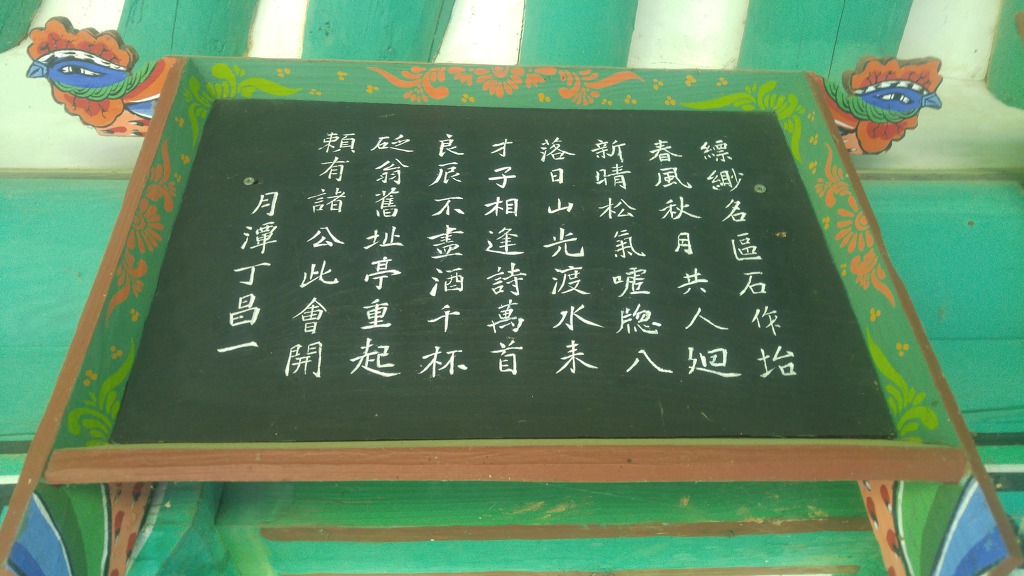 縹緲名區石作坮
春風秋月共人廻
新晴松氣嘘牕入
落日山光渡水来
才子相逢詩萬首
良辰不盡酒千杯
砭翁舊址亭重起
頼有諸公此會開
月潭丁昌一